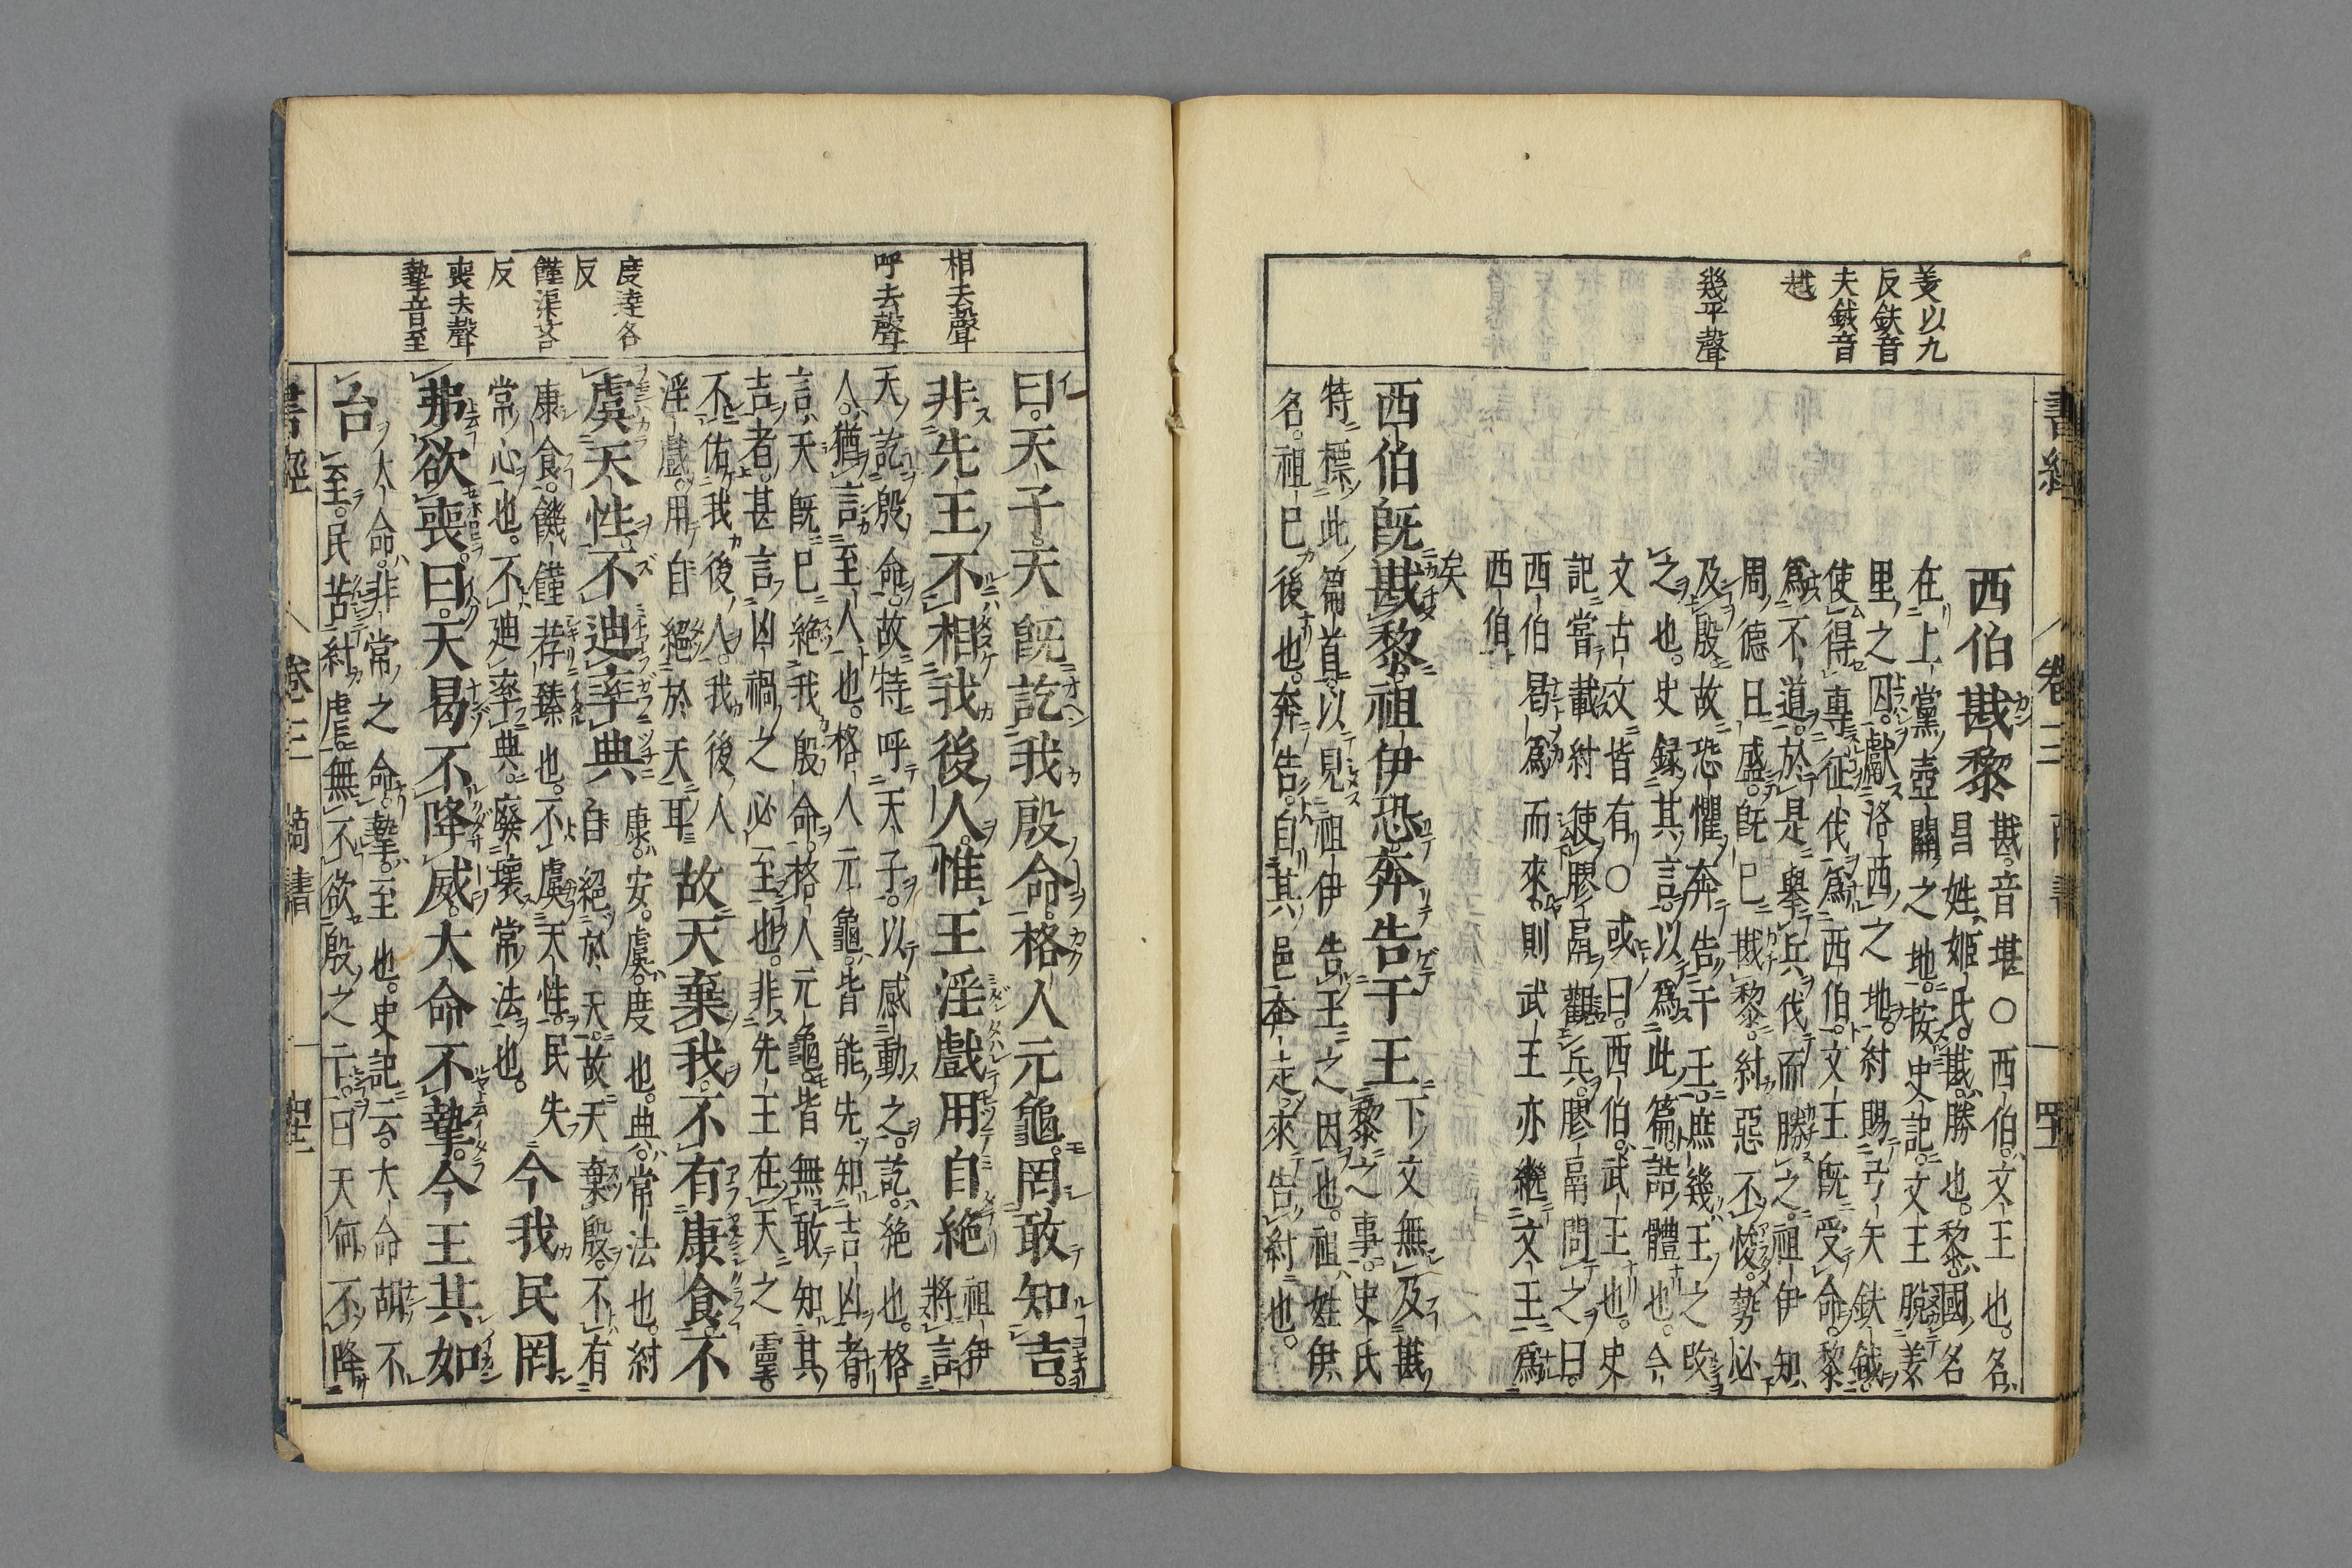 書經　卷三　商書　四十
羑以九
反鈇音
夫鉞音
越
幾平聲
西伯戡黎
戡音堪○西伯文王也名
昌姓姬氏戡勝也黎國名
在上黨壺關之地按史記文王脫羑
里之囚獻洛西之地紂賜弓矢鈇鉞
使得專征伐爲西伯文王旣受命黎
爲不道於是舉兵伐而勝之祖伊知
周德日盛旣已戡黎紂惡不悛勢必
及殷故恐懼奔告于王庶幾王之改
之也史錄其言以爲此篇誥體也今
文古文皆有○或曰西伯武王也史
記嘗載紂使膠鬲觀兵膠鬲問之曰
西伯曷爲而來則武王亦繼文王爲
西伯
矣
西伯旣戡黎祖伊恐奔告于王
下文無及戡
黎之事史氏
特標此篇首以見祖伊告王之因也祖姓伊
名祖已後也奔告自其邑奔走來告紂也
相去聲
呼去聲
度達各
反
饉渠吝
反
喪去聲
摯音至
曰天子天旣訖我殷命格人元龜罔敢知吉
非先王不相我後人惟王淫戲用自絕
祖伊
將言
天訖殷命故特呼天子以感動之訖絕也格
人猶言至人也格人元龜皆能先知吉凶者
言天旣已絕我殷命格人元龜皆無敢知其
吉者甚言凶禍之必至也非先王在天之靈
不佑我後人我後人
淫戲用自絕於天耳
故天棄我不有康食不
虞天性不迪率典
康安虞度也典常法也紂
自絕於天故天棄殷不有
康食饑饉荐臻也不虞天性民失
常心也不迪率典廢壞常法也
今我民罔
弗欲喪曰天曷不降威大命不摯今王其如
台
大命非常之命摯至也史記云大命胡不
至民苦紂虐無不欲殷之亡曰天何不降
書經　卷三　商書